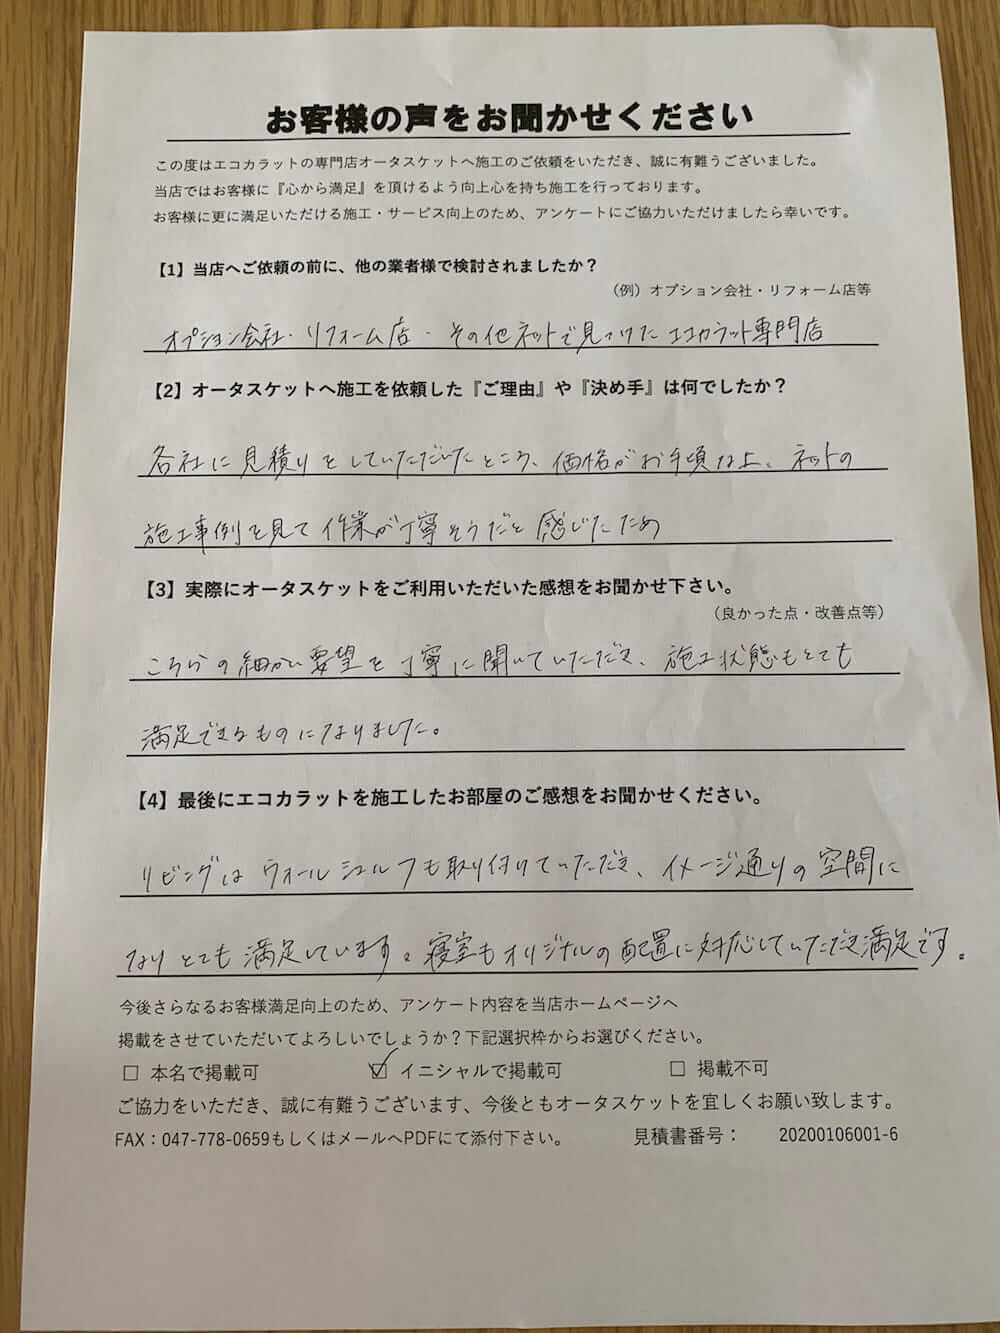 お客様の声をお聞かせください
この度はエコカラットの専門店オータスケットへ施工のご依頼をいただき、誠に有難うございました。
当店ではお客様に『心から満足』を頂けるよう向上心を持ち施工を行っております。
お客様に更に満足いただける施工・サービス向上のため、アンケートにご協力いただけましたら幸いです。
【1】当店へご依頼の前に、他の業者様で検討されましたか？
（例）オプション会社・リフォーム店等
オプション会社・リフォーム店・その他ネットで見つけたエコカラット専門店
【2】オータスケットへ施工を依頼した『ご理由』や『決め手』は何でしたか？
各社に見積りをしていただいたところ、価格がお手頃な上、ネットの
施工事例を見て作業が丁寧そうだと感じたため
【3】実際にオータスケットをご利用いただいた感想をお聞かせ下さい。
（良かった点・改善点等）
こちらの細かい要望を丁寧に聞いていただき、施工状態もとても
満足できるものになりました。
【4】最後にエコカラットを施工したお部屋のご感想をお聞かせください。
リビングはウォールシェルフも取り付けていただき、イメージ通りの空間に
なりとても満足しています。寝室もオリジナルの配置に対応していただき満足です。
今後さらなるお客様満足向上のため、アンケート内容を当店ホームページへ
掲載をさせていただいてよろしいでしょうか？下記選択枠からお選びください。
□ 本名で掲載可 ☑ イニシャルで掲載可 □ 掲載不可
ご協力をいただき、誠に有難うございます、今後ともオータスケットを宜しくお願い致します。
FAX：047-778-0659もしくはメールへPDFにて添付下さい。 見積書番号： 20200106001-6